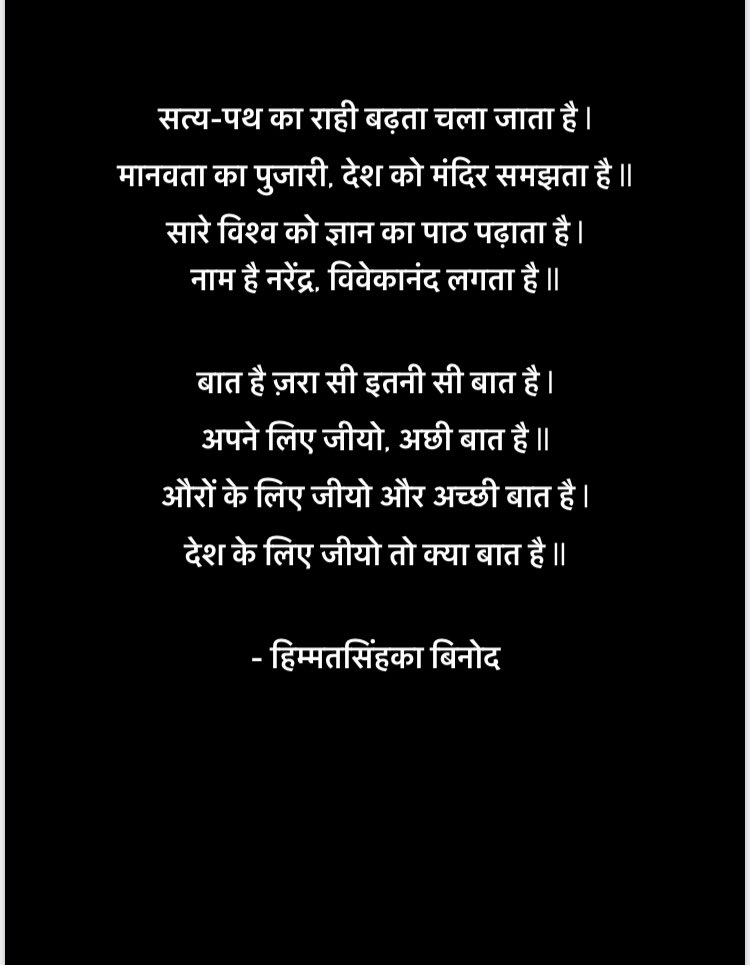 सत्य-पथ का राही बढ़ता चला जाता है।
मानवता का पुजारी, देश को मंदिर समझता है॥
सारे विश्व को ज्ञान का पाठ पढ़ाता है।
नाम है नरेंद्र, विवेकानंद लगता है॥
बात है ज़रा सी इतनी सी बात है।
अपने लिए जीयो, अछी बात है॥
औरों के लिए जीयो और अच्छी बात है।
देश के लिए जीयो तो क्या बात है॥
- हिम्मतसिंहका बिनोद